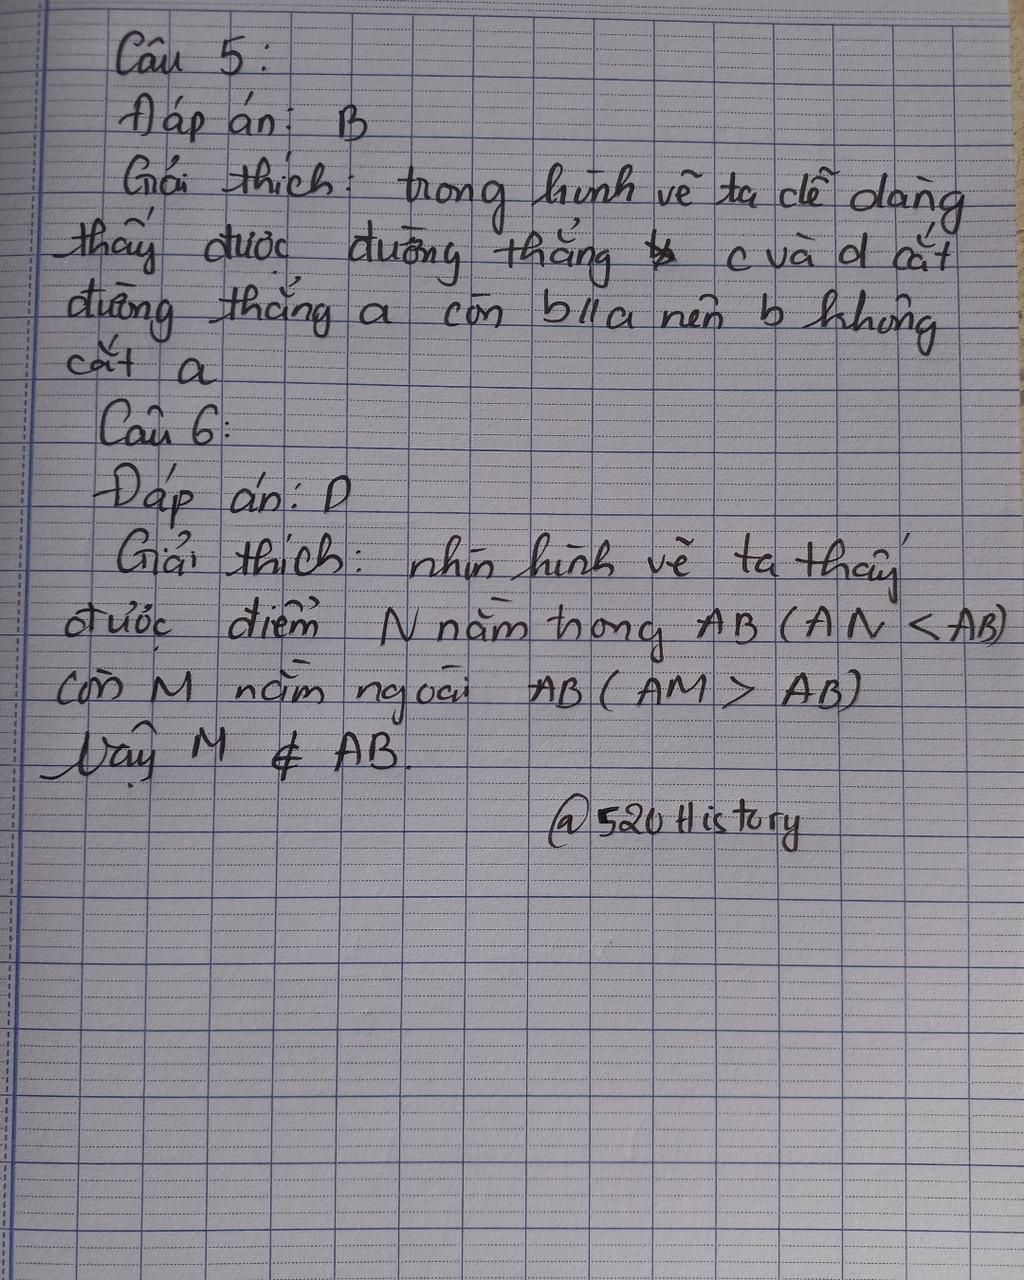 Câu 5:
Đáp án: B
Giải thích: trong hình vẽ ta dễ dàng
thấy được đường thẳng c và d cắt
đường thẳng a còn b//a nên b không
cắt a
Câu 6:
Đáp án: D
Giải thích: nhìn hình vẽ ta thấy
được điểm N nằm trong AB (AN < AB)
còn M nằm ngoài AB (AM > AB)
Vậy M ∉ AB.
@520History